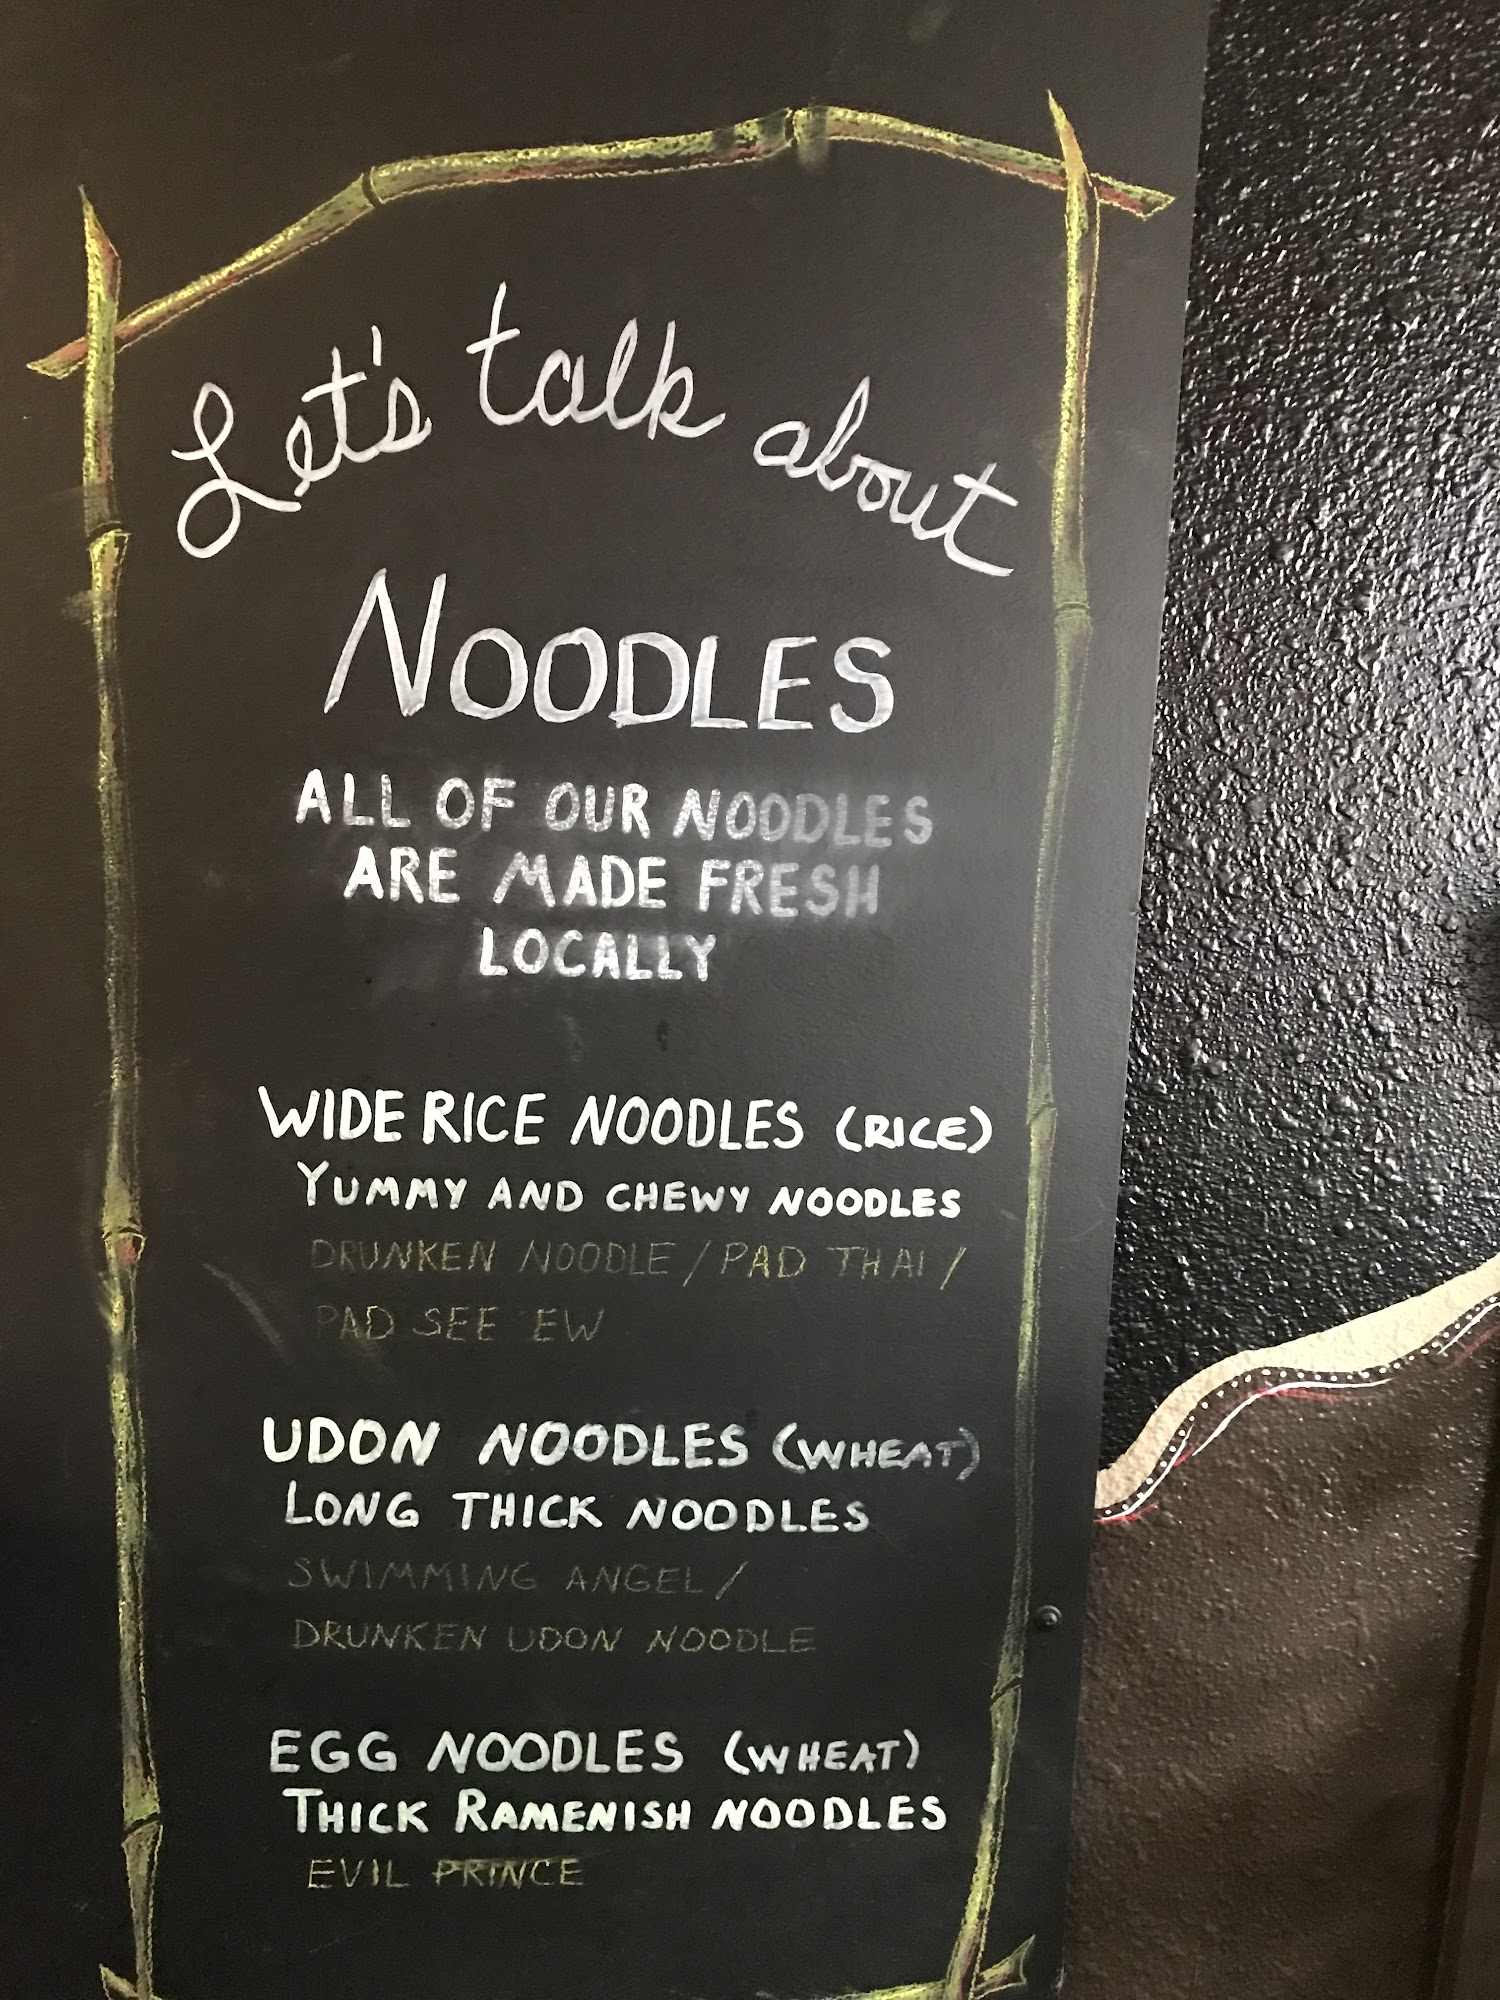 Let's talk about
NOODLES
ALL OF OUR NOODLES
ARE MADE FRESH
LOCALLY
WIDE RICE NOODLES (RICE)
YUMMY AND CHEWY NOODLES
DRUNKEN NOODLE / PAD THAI /
PAD SEE EW
UDON NOODLES (WHEAT)
LONG THICK NOODLES
SWIMMING ANGEL /
DRUNKEN UDON NOODLE
EGG NOODLES (WHEAT)
THICK RAMENISH NOODLES
EVIL PRINCE